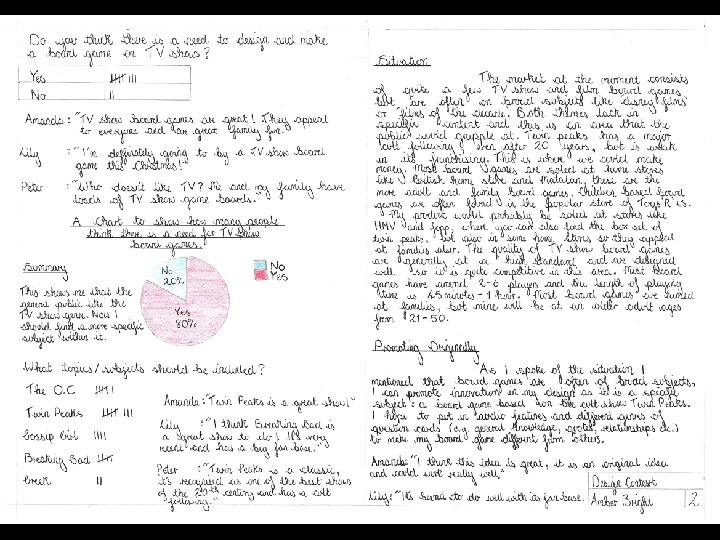 Do you think there is a need to design and make
a board game on TV shows?
Yes
No
Amanda: "TV show board games are great! They appeal
to everyone and are great family fun."
Lily : "I'm definately going to by a TV show board
game this Christmas!"
Peter : "Who doesn't like TV? Me and my family have
loads of TV show game boards."
A Chart to show how many people
think there is a need for TV show
board games.
No
20%
Yes
80%
No
Yes
Summary
This shows me that the
general public like the
TV show genre. Now I
should find a more specific
subject within it.
What topics/subjects should be included?
The O.C
Twin Peaks
Gossip Girl
Breaking Bad
Greek
Amanda: "Twin Peaks is a great show!"
Lily : "I think Breaking Bad is
a great show to do! It's very
recent and has a big fan base."
Peter : "Twin Peaks is a classic,
it's recognised as one of the best shows
of the 20th century and has a cult
following."
Situation
The market at the moment consists
of quite a few TV show and film board games
but are often on broad subjects like disney films
or films of the decade. Both themes lack in
specific content and this is an area that the
public would grapple at. Twin peaks has a major
cult following even after 20 years, but is weak
in its franchising. This is where we could make
money. Most board games are soled at home stores
like British home store and Matalan, these are the
more adult and family board games. Children based board
games are often found in the popular store of Toys'R'Us.
My product would probably be soled at stores like
HMV and fopp, where you can also find the box set of
twin peaks, but also in some home stores so they appeal
at families also. The quality of TV show board games
are generally at a high standard and are designed
well so it is quite competitive in this area. Most board
games have around 2-6 players and the length of playing
time is 45 minutes - 1 hour. Most board games are aimed
at families, but mine will be at an older adult ages
from 21-50.
Promoting Originality
As I spoke of the situation I
mentioned that board games are often of broad subjects.
I can promote innovation in my design as it is a specific
subject: a board game based on the cult show Twin Peaks.
I hope to put in audio features and different genres of
question cards (e.g. general knowledge, quotes, relationships etc.)
to make my board game different from others.
Amanda: "I think this idea is great, it is an original idea
and could work really well."
Lily: "It's bound to do well with its fan base.
Design Context
Amber Bright
2